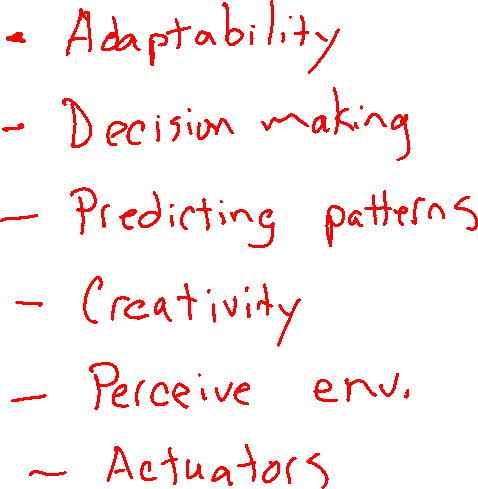 - Adaptability
- Decision making
- Predicting patterns
- Creativity
- Perceive env.
- Actuators